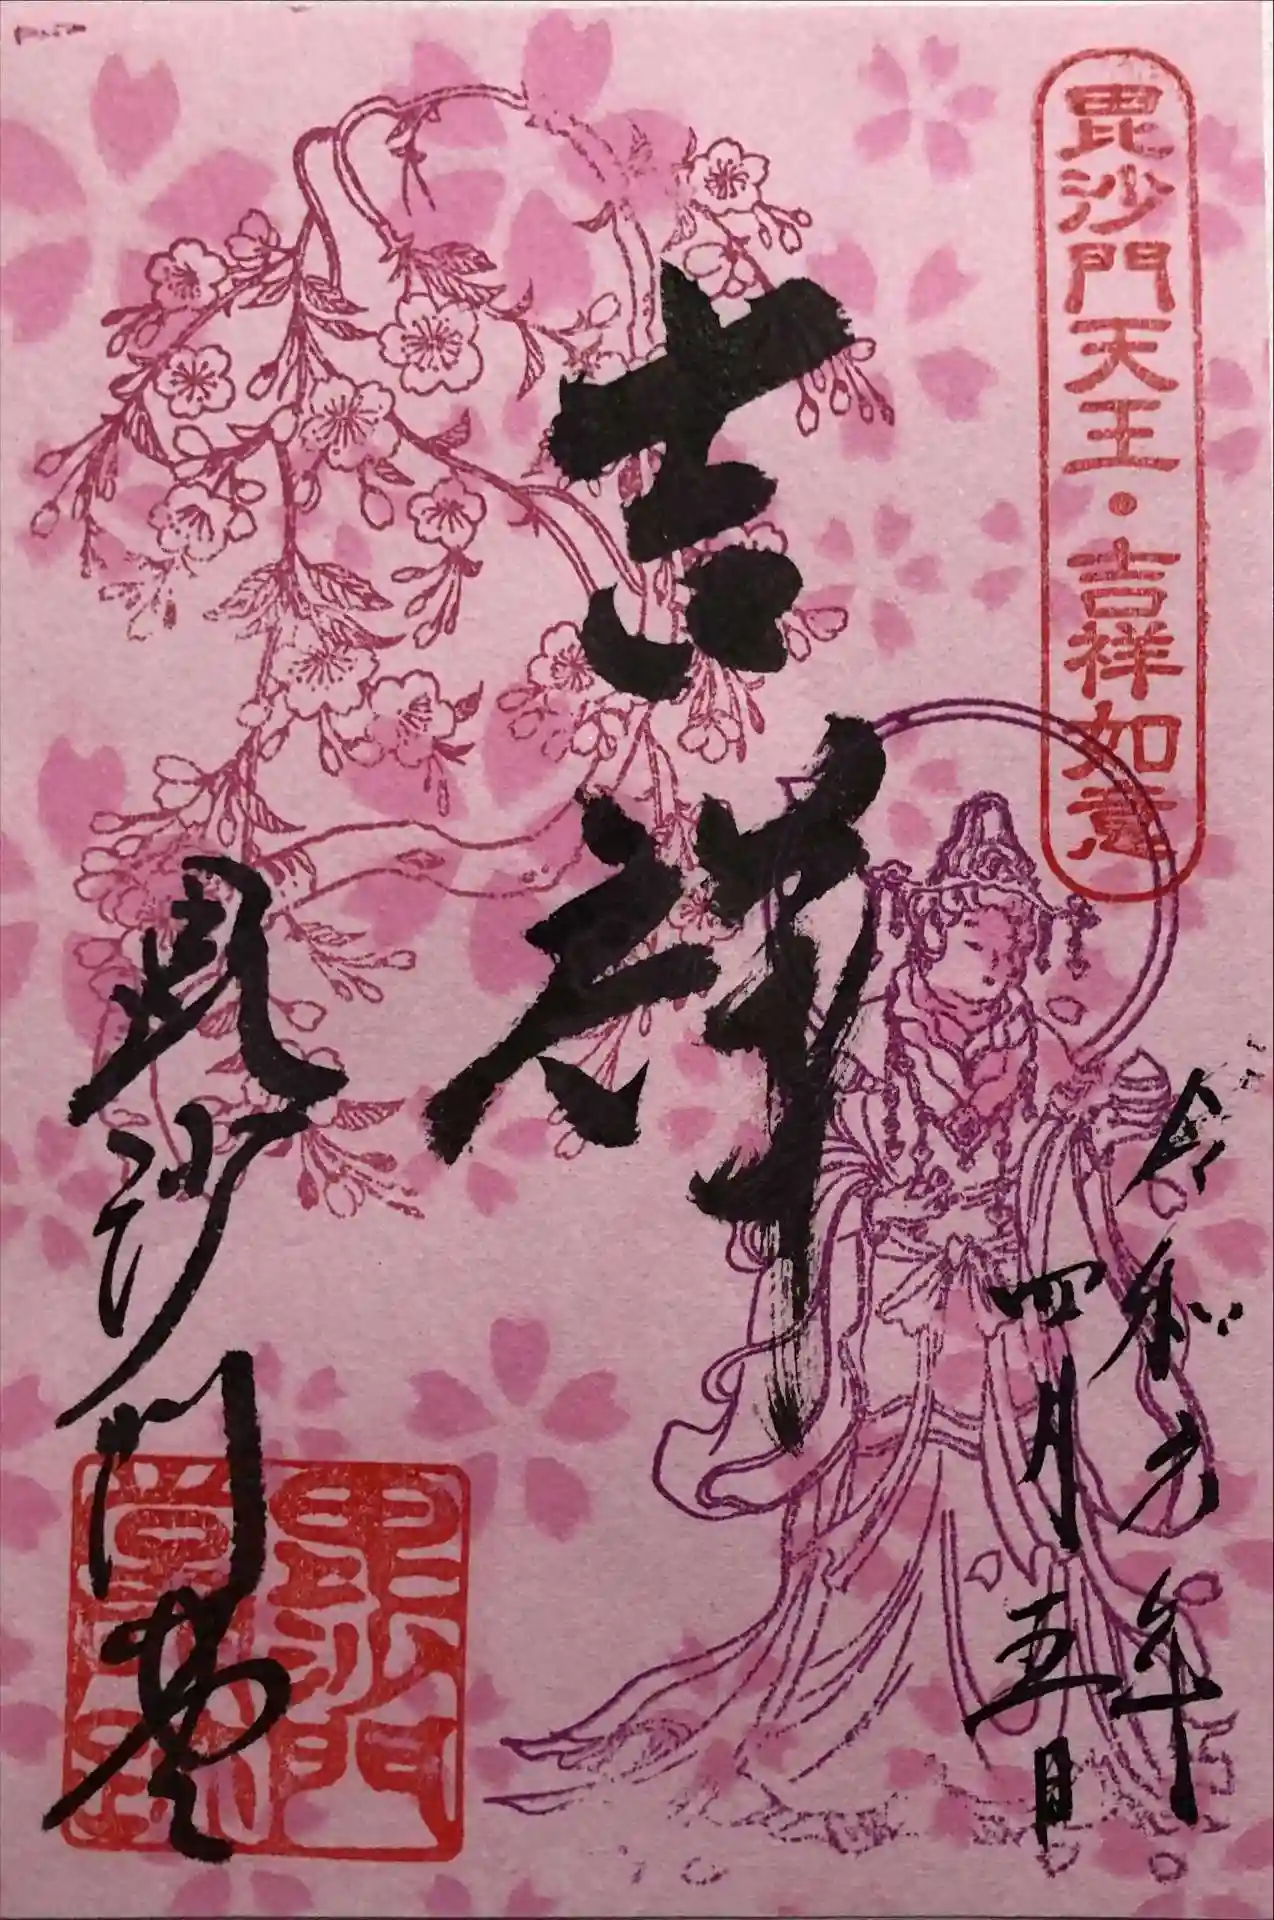 毘沙門天王・吉祥如意
令和元年
四月五日
吉祥
毘沙門堂
毘沙門
堂